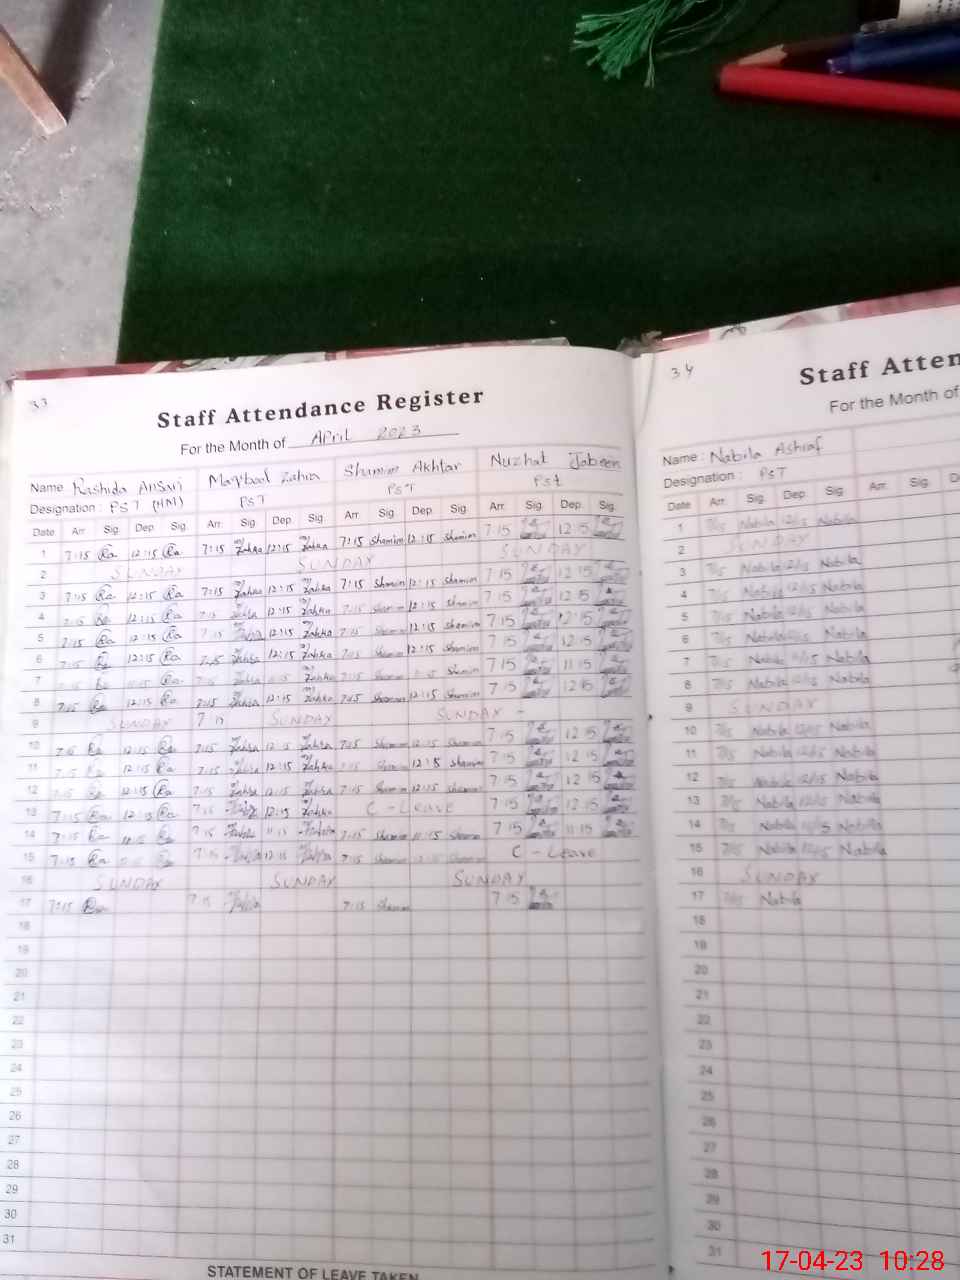 33
Staff Attendance Register
For the Month of April 2023
Name Rashida Ansari Maqbool Zahra Shamim Akhtar Nuzhat Jabeen
Designation: PST (HM) PST PST PST
Date Arr. Sig. Dep. Sig. Arr. Sig. Dep. Sig. Arr. Sig. Dep. Sig. Arr. Sig. Dep. Sig.
1 7:15 Ra 12:15 Ra 7:15 Zahra 12:15 Zahra 7:15 Shamim 12:15 Shamim 7:15 12:15
2 SUNDAY SUNDAY SUNDAY
3 7:15 Ra 12:15 Ra 7:15 Zahra 12:15 Zahra 7:15 Shamim 12:15 Shamim 7:15 12:15
4 7:15 Ra 12:15 Ra 7:15 Zahra 12:15 Zahra 7:15 Shamim 12:15 Shamim 7:15 12:15
5 7:15 Ra 12:15 Ra 7:15 Zahra 12:15 Zahra 7:15 Shamim 12:15 Shamim 7:15 12:15
6 7:15 Ra 12:15 Ra 7:15 Zahra 12:15 Zahra 7:15 Shamim 12:15 Shamim 7:15 12:15
7 7:15 Ra 11:15 Ra 7:15 Zahra 11:15 Zahra 7:15 Shamim 11:15 Shamim 7:15 11:15
8 7:15 Ra 12:15 Ra 7:15 Zahra 12:15 Zahra 7:15 Shamim 12:15 Shamim 7:15 12:15
9 SUNDAY 7:15 SUNDAY SUNDAY -
10 7:15 Ra 12:15 Ra 7:15 Zahra 12:15 Zahra 7:15 Shamim 12:15 Shamim 7:15 12:15
11 7:15 Ra 12:15 Ra 7:15 Zahra 12:15 Zahra 7:15 Shamim 12:15 Shamim 7:15 12:15
12 7:15 Ra 12:15 Ra 7:15 Zahra 12:15 Zahra 7:15 Shamim 12:15 Shamim 7:15 12:15
13 7:15 Ra 12:15 Ra 7:15 Zahra 12:15 Zahra C - Leave 7:15 12:15
14 7:15 Ra 11:15 Ra 7:15 Zahra 11:15 Zahra 7:15 Shamim 11:15 Shamim 7:15 11:15
15 7:15 Ra Ra 7:15 Zahra 12:15 Zahra 7:15 Shamim 12:15 Shamim C - Leave
16 SUNDAY SUNDAY SUNDAY
17 7:15 Ra 7:15 Zahra 7:15 Shamim 7:15
18
19
20
21
22
23
24
25
26
27
28
29
30
31
STATEMENT OF LEAVE TAKEN
34
Staff Atten
For the Month of
Name: Nabila Ashraf
Designation: PST
Date Arr. Sig. Dep. Sig. Arr. Sig.
1 7/15 Nabila 12/15 Nabila
2 SUNDAY
3 7/15 Nabila 12/15 Nabila
4 7/15 Nabila 12/15 Nabila
5 7/15 Nabila 12/15 Nabila
6 7/15 Nabila 12/15 Nabila
7 7/15 Nabila 11/15 Nabila
8 7/15 Nabila 12/15 Nabila
9 SUNDAY
10 7/15 Nabila 12/15 Nabila
11 7/15 Nabila 12/15 Nabila
12 7/15 Nabila 12/15 Nabila
13 7/15 Nabila 12/15 Nabila
14 7/15 Nabila 11/15 Nabila
15 7/15 Nabila 12/15 Nabila
16 SUNDAY
17 7/15 Nabila
18
19
20
21
22
23
24
25
26
27
28
29
30
31
17-04-23 10:28